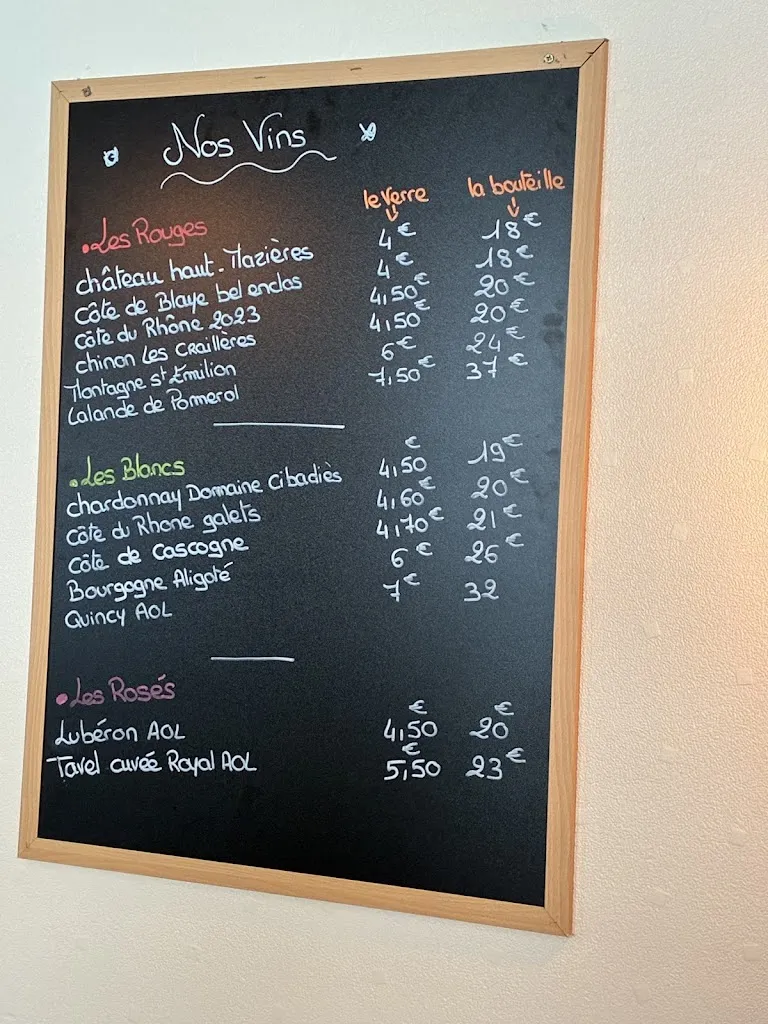 Nos Vins
le verre la bouteille
• Les Rouges
château haut-Mazières 4€ 18€
Côte de Blaye bel enclos 4€ 18€
Côte du Rhône 2023 4,50€ 20€
chinon Les Craillères 4,50€ 20€
Montagne St Émilion 6€ 24€
Lalande de Pomerol 7,50€ 37€
• Les Blancs
chardonnay Domaine Cibadiès 4,50€ 19€
Côte du Rhone galets 4,60€ 20€
Côte de Gascogne 4,70€ 21€
Bourgogne Aligoté 6€ 26€
Quincy AOL 7€ 32
• Les Rosés
Lubéron AOL 4,50€ 20€
Tavel cuvée Royal AOL 5,50€ 23€